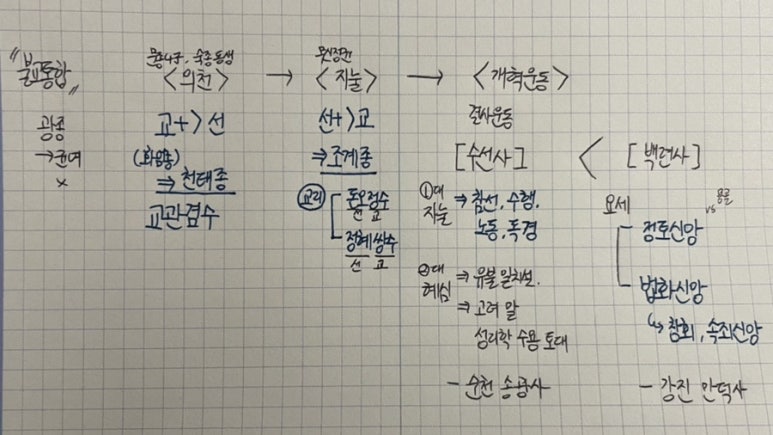 "불교통합"
광종
→균여
×
문종4子, 숙종동생
<의천>
교+>선
(화엄종)
⇒천태종
교관겸수
→
무신정권
<지눌>
선+>교
⇒조계종
교리
돈오점수
선 교
정혜쌍수
선 교
→
<개혁운동>
결사운동
[수선사]
①대
지눌
⇒참선, 수행,
노동, 독경
②대
혜심
⇒유불일치설.
⇒고려 말
성리학 수용 토대
- 순천 송광사
<
[백련사]
요세
vs 몽골
정토신앙
법화신앙
↳참회, 속죄신앙
- 강진 만덕사